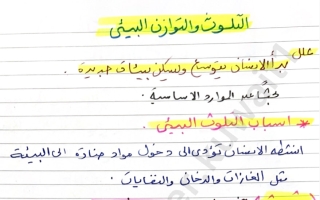 التلوث والتوازن البيئي
علل
بدأ الانسان يتوسع ويسكن بيئات جديدة .
بحثًا عن الموارد الاساسية .
* اسباب التلوث البيئي .
انشطه الانسان تؤدي الى دخول مواد ضارة الى البيئة
مثل الغازات والدخان والنفايات .